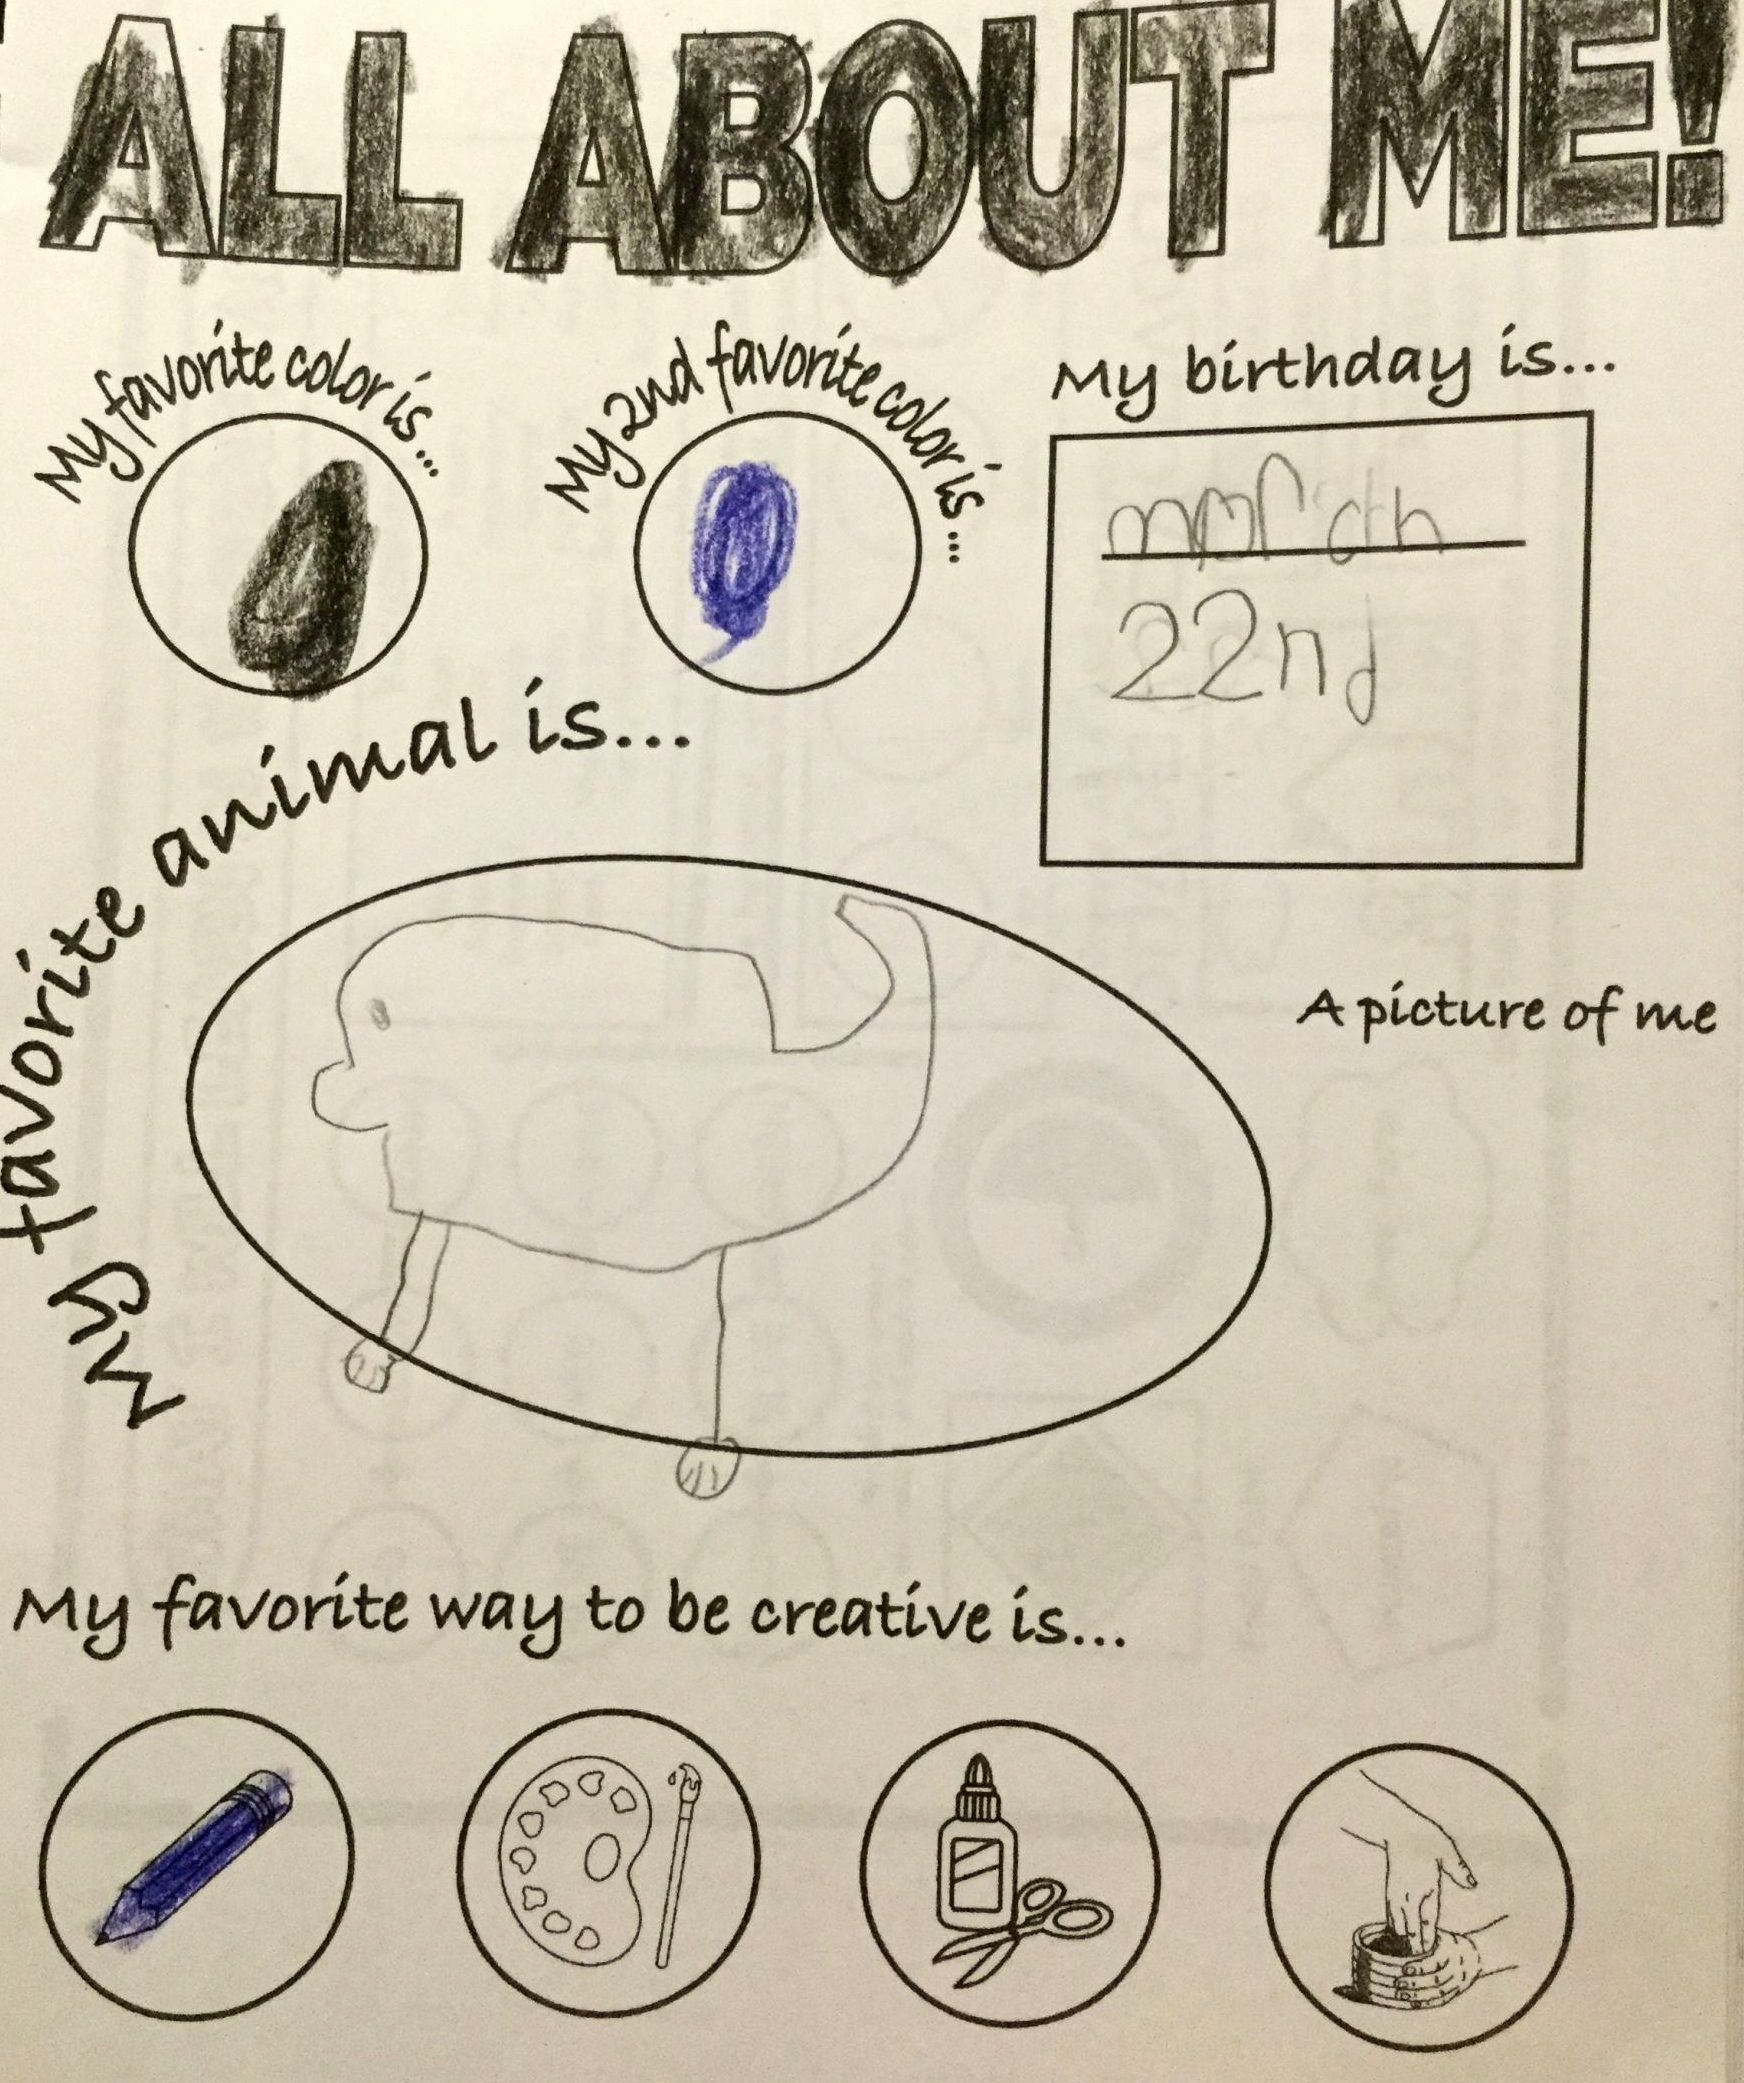 ALL ABOUT ME!
My favorite color is...
My 2nd favorite color is...
My birthday is...
march
22nd
My favorite animal is...
A picture of me
My favorite way to be creative is...